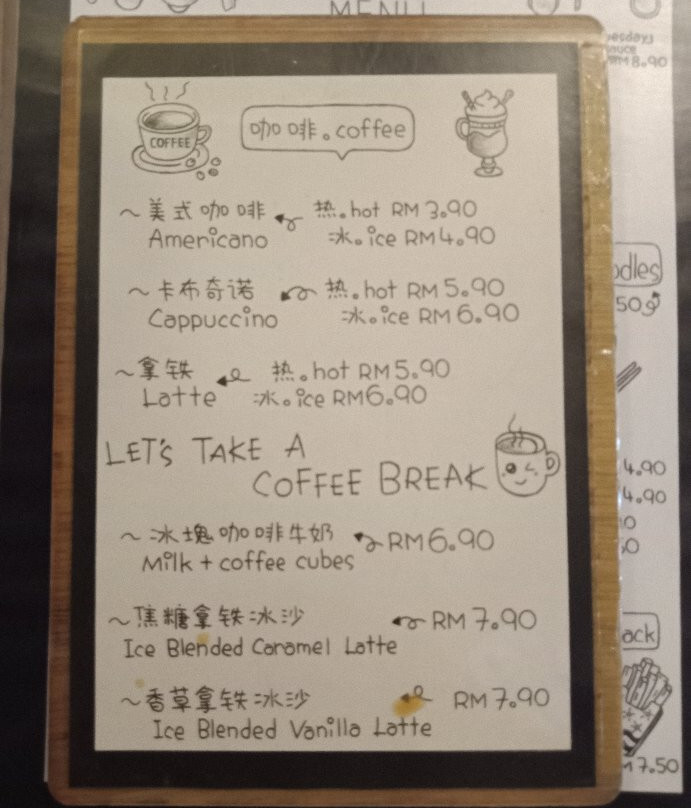 MENU
COFFEE
咖啡。coffee
~美式咖啡 热.hot RM3.90
Americano 冰.ice RM4.90
~卡布奇诺 热.hot RM5.90
Cappuccino 冰.ice RM6.90
~拿铁 热.hot RM5.90
Latte 冰.ice RM6.90
LET'S TAKE A
COFFEE BREAK
~冰塊咖啡牛奶 RM6.90
Milk + coffee cubes
~焦糖拿铁冰沙 RM7.90
Ice Blended Caramel Latte
~香草拿铁冰沙 RM7.90
Ice Blended Vanilla Latte
8.90
4.90
4.90
7.50